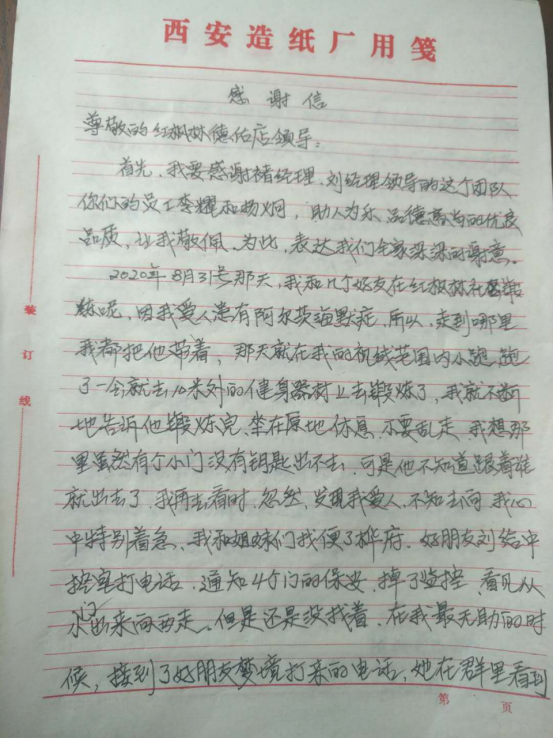 西安造纸厂用笺
感谢信
尊敬的红枫林德佑店领导:
首先,我要感谢褚经理、刘经理领导的这个团队
你们的员工李耀和杨炯,助人为乐、品德高尚的优良
品质,让我敬佩。为此,表达我们全家深深的谢意。
2020年8月31号那天,我和几个好友在红枫林
炼呢,因我爱人患有阿尔茨海默症,所以,走到哪里
我都把他带着,那天就在我的视线范围内小跑,跑
了一会就去10米外的健身器材上去锻炼了,我就不断
地告诉他锻炼完、坐在原地休息,不要乱走,我想那
里虽然有个小门没有钥匙出不去,可是他不知道跟着谁
就出去了,我再去看时,忽然,发现我爱人,不知去向,我心
中特别着急、我和姐妹们找便了桦府,好朋友刘给中
控室打电话,通知4个门的保安,掉了监控,看见从
小门出来向西走,但是还是没找着,在我最无助的时
候,接到了好朋友梦境打来的电话,她在群里看到
装
订
线
第 页